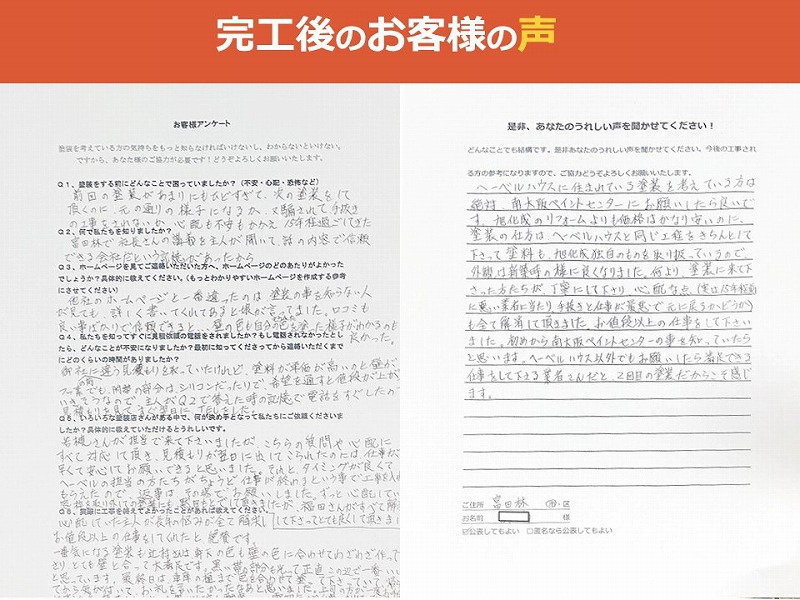 完工後のお客様の声
お客様アンケート
塗装を考えている方の気持ちをもっと知らなければいけないし、わからないといけない。
ですから、あなた様のご協力が必要です！どうぞよろしくお願いいたします。
Q1、塗装をする前にどんなことで困っていましたか？（不安・心配・恐怖など）
前回の塗装があまりにもひどすぎて、次の塗装をして
頂くのに、元の通りの様子になるか、又騙されて手抜き
の工事をされないか心配も不安もかかえ15年程過ごしてきた
Q2、何で私たちを知りましたか？
富田林で社長さんの講義を主人が聞いて、話の内容で信頼
できる会社だという記憶があったから
Q3、ホームページを見てご連絡いただいた方へ、ホームページのどのあたりがよかった
でしょうか？具体的に教えてください。（もっとわかりやすいホームページを作成する参考
にさせてください）
他社のホームページと一番違ったのは塗装の事を知らない人
が見ても、詳しく書いてくれてあると娘が言ってました。口コミも
良い事ばかりで信頼できると、壁の色も自分の色を入れ様子がわかるのも
良かった。
Q4、私たちを知ってすぐに見積依頼の電話をされましたか？もし電話されなかったとし
たら、どんなことが不安になりましたか？最初に知ってくださってから連絡いただくまで
にどのくらいの時間がありましたか？
御社に違う見積もりを取っていたけれど、塗料が単価が高いのと壁が
フッ素でも、間の部分はシリコンだったりで、希望を通すと値段が上が
いきそうなので、主人がQ2で答えた時の記憶で電話をすぐしたので
見積もりを見てすぐ翌日にTELをした。
Q5、いろいろな塗装店さんがある中で、何が決め手となって私たちにご依頼くださいま
したか？具体的に教えていただけるとうれしいです。
若槻さんが担当で来て下さいましたが、こちらの質問や心配に
すぐ対応して頂き、見積もりが翌日に出してこられたのには、仕事が
早くて安心してお願いできると思いました。それと、タイミングが良くて
ヘーベルの担当の方たちがちょうど仕事が終わるという事で工事を入
もらえたので、返事は、その場でお願いしました。ずっと心配してい
Q6、実際に工事を終えてよかったことがあれば教えてください。
心配していた主人が長年の悩みが全て解決して下さってとても良くして頂きま
お値段以上の仕事をしてくれたと絶賛です。
是非、あなたのうれしい声を聞かせてください！
どんなことでも結構です。是非あなたのうれしい声を聞かせてください。今後の工事され
る方の参考になりますので、ご協力どうぞよろしくお願いいたします。
ヘーベルハウスに住まれている塗装を考えている方は
絶対、南大阪ペイントセンターにお願いしたら良いで
す。旭化成のリフォームよりも価格はかなり安いのに、
塗装の仕方は、ヘーベルハウスと同じ工程をきちんとして
下さって塗料も、旭化成独自のものを取り扱っているので、
外観は新築時の様に良くなりました。何より、塗装に来て下
さった方たちが、丁寧にして下さり、心配な点、（実は15年程前
に悪い業者に当たり、手抜きと仕事が最悪で元に戻るかどうか）
も全て解消して頂きました。お値段以上の仕事をして下さい
ました。初めから南大阪ペイントセンターの事を知っていたら
と思います。ヘーベルハウス以外でもお願いしたら満足できる
仕事をして下さる業者さんだと、2回目の塗装だからこそ感じ
ます。
ご住所 富田林 市・区
お名前 様
公表してもよい 匿名なら公表してもよい